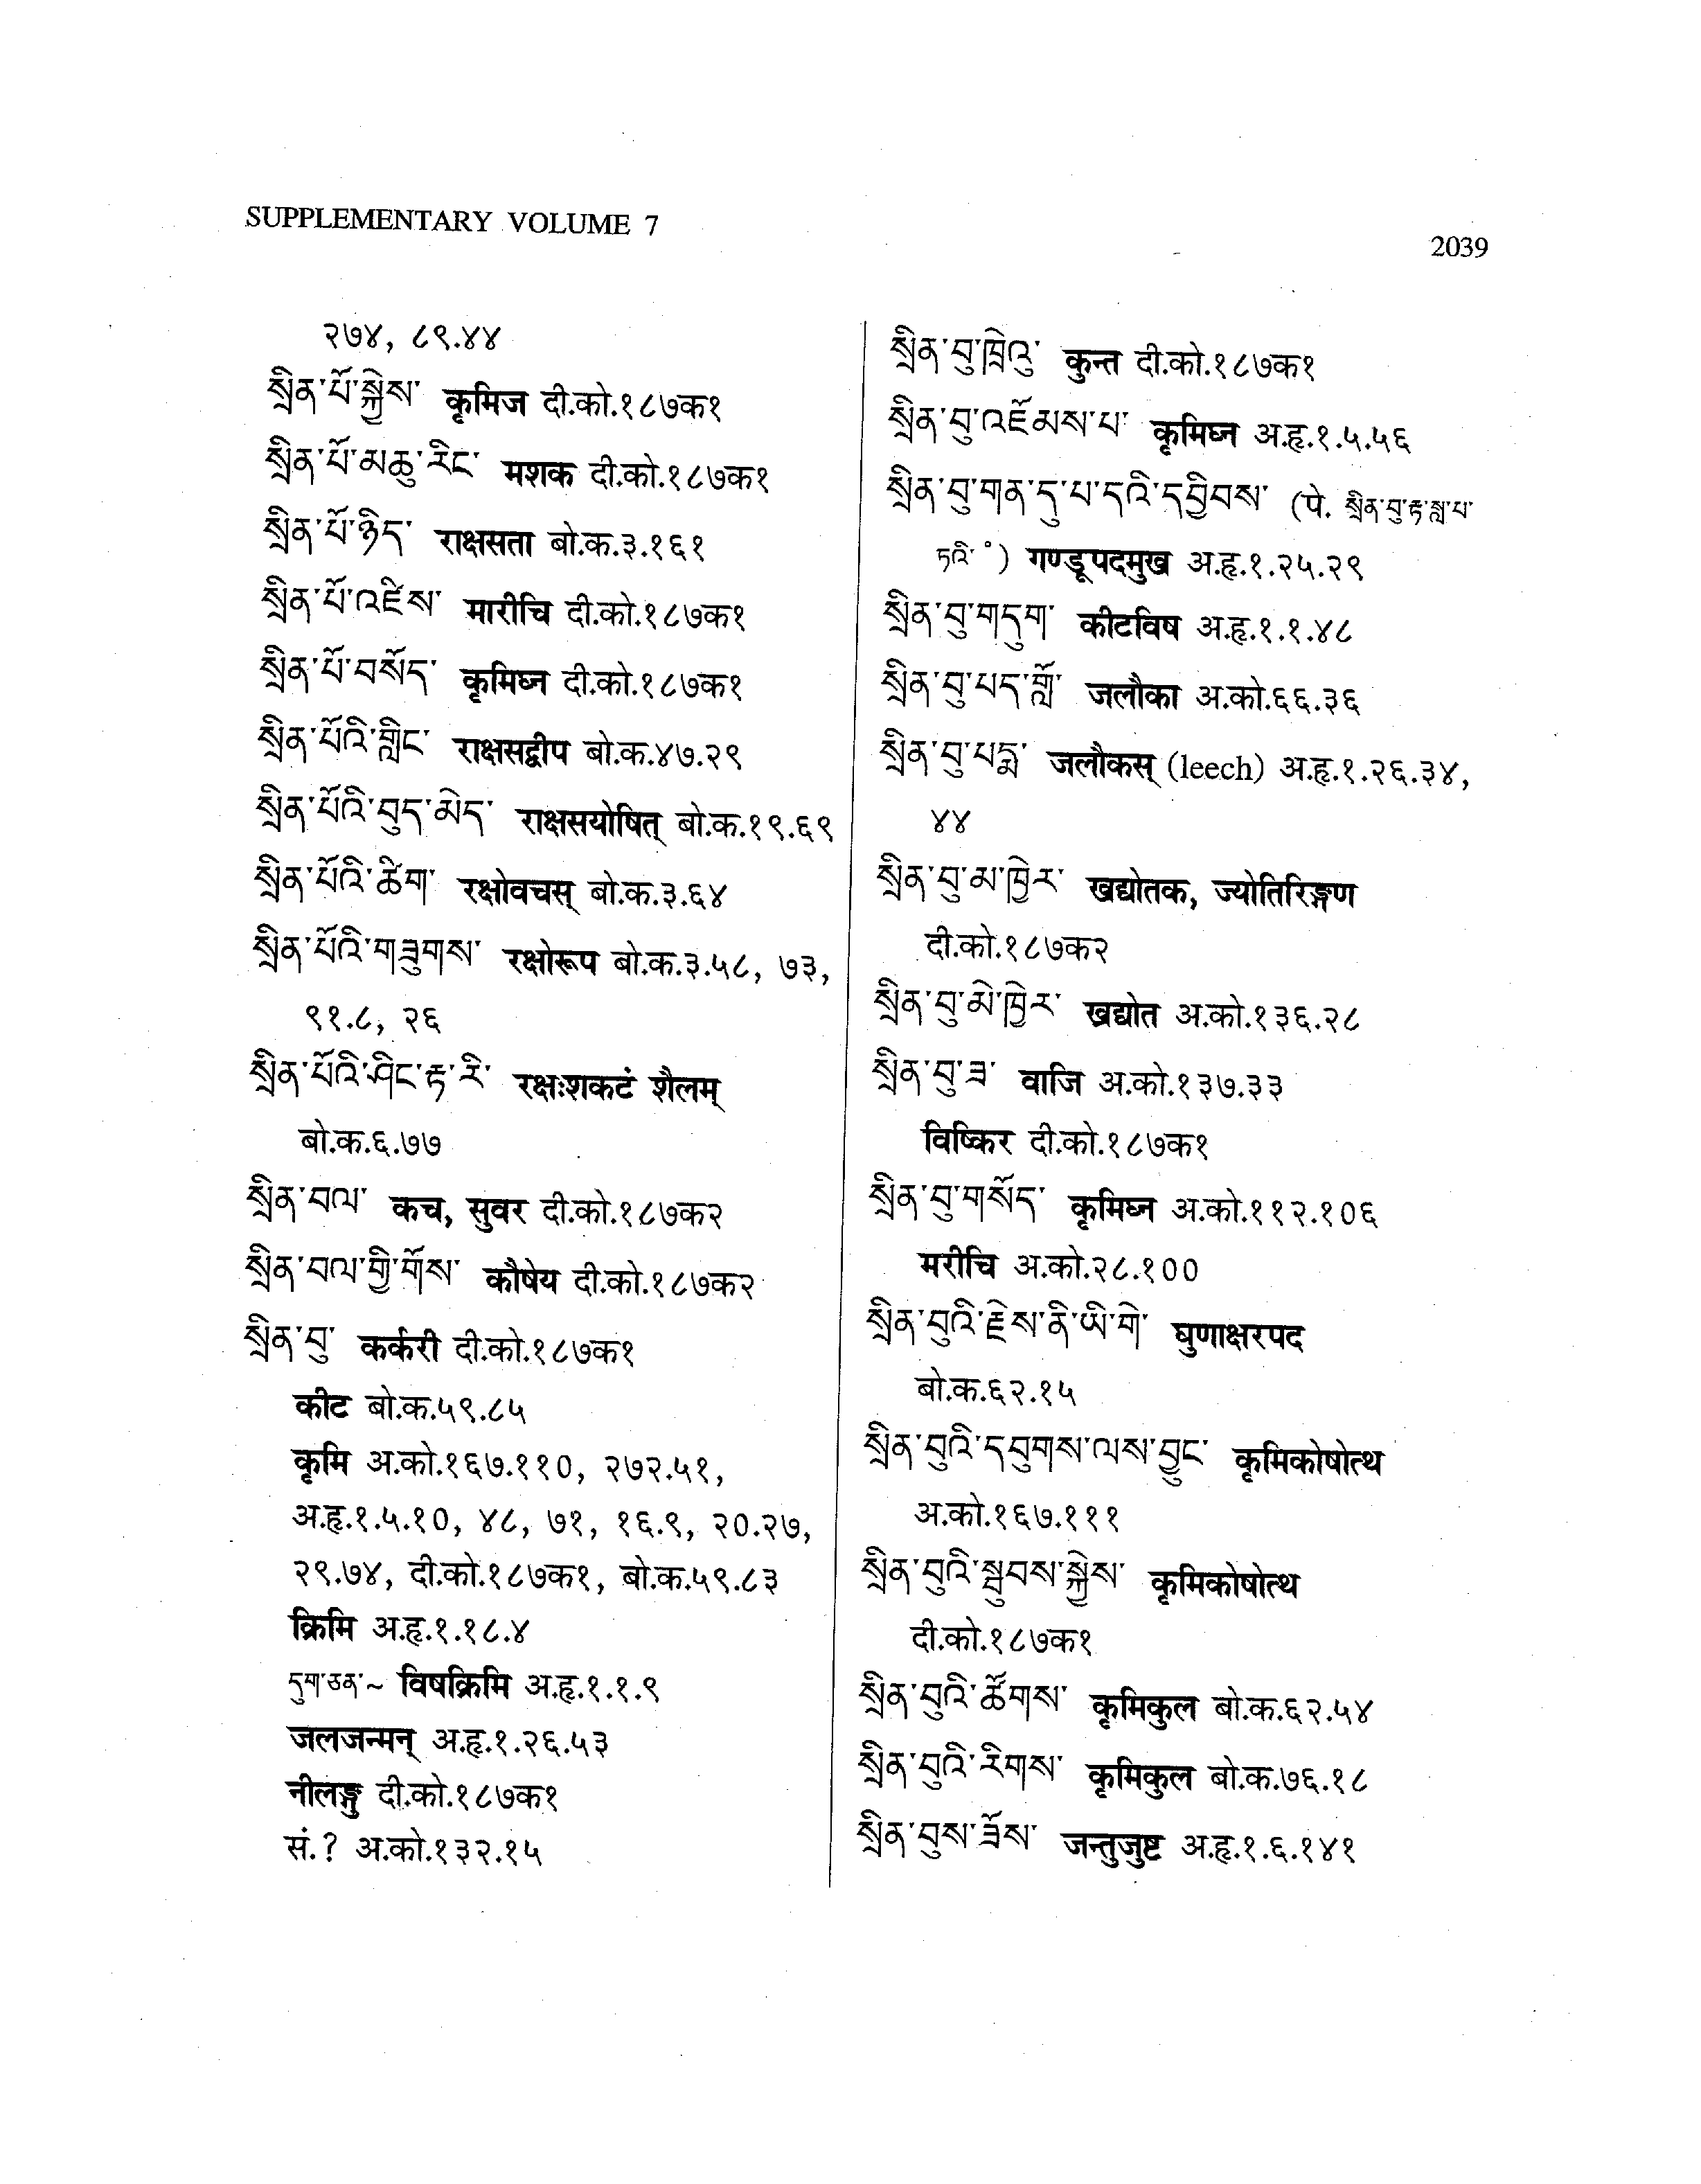 SUPPLEMENTARY VOLUME 7
2039
२७४, ८९.४४
སྲིན་པོ་སྐྱེས་ कृमिज दी.को.१८७क१
སྲིན་པོ་མཆུ་རིང་ मशक दी.को.१८७क१
སྲིན་པོ་ཉིད་ राक्षसता बो.क.३.१६१
སྲིན་པོ་འཛིས་ मारीचि दी.को.१८७क१
སྲིན་པོ་བསོད་ कृमिघ्न दी.को.१८७क१
སྲིན་པོའི་གླིང་ राक्षसद्वीप बो.क.४७.२९
སྲིན་པོའི་བུད་མེད་ राक्षसयोषित् बो.क.१९.६९
སྲིན་པོའི་ཚིག་ रक्षोवचस् बो.क.३.६४
སྲིན་པོའི་གཟུགས་ रक्षोरूप बो.क.३.५८, ७३,
९१.८, २६
སྲིན་པོའི་ཤིང་རྟ་རི་ रक्षःशकटं शैलम्
बो.क.६.७७
སྲིན་བལ་ कच, सुवर दी.को.१८७क२
སྲིན་བལ་གྱི་གོས་ कौषेय दी.को.१८७क२
སྲིན་བུ་ कर्करी दी.को.१८७क१
कीट बो.क.५९.८५
कृमि अ.को.१६७.११०, २७२.५१,
अ.हृ.१.५.१०, ४८, ७१, १६.९, २०.२७,
२९.७४, दी.को.१८७क१, बो.क.५९.८३
क्रिमि अ.हृ.१.१८.४
དུག་ཅན་~ विषक्रिमि अ.हृ.१.१.९
जलजन्मन् अ.हृ.१.२६.५३
नीलङ्गु दी.को.१८७क१
सं.? अ.को.१३२.१५
སྲིན་བུ་ཁྲིའུ་ कुन्त दी.को.१८७क१
སྲིན་བུ་འཇོམས་པ་ कृमिघ्न अ.हृ.१.५.५६
སྲིན་བུ་གན་དུ་པ་དའི་དབྱིབས་ (पे. སྲིན་བུ་རྟ་སླ་པ་
ཏའི་ ॰) गण्डूपदमुख अ.हृ.१.२५.२९
སྲིན་བུ་གདུག་ कीटविष अ.हृ.१.१.४८
སྲིན་བུ་པད་གློ་ जलौका अ.को.६६.३६
སྲིན་བུ་པདྨ་ जलौकस् (leech) अ.हृ.१.२६.३४,
४४
སྲིན་བུ་མ་ཁྱེར་ खद्योतक, ज्योतिरिङ्गण
दी.को.१८७क२
སྲིན་བུ་མེ་ཁྱེར་ खद्योत अ.को.१३६.२८
སྲིན་བུ་ཟ་ वाजि अ.को.१३७.३३
विष्किर दी.को.१८७क१
སྲིན་བུ་གསོད་ कृमिघ्न अ.को.११२.१०६
मरीचि अ.को.२८.१००
སྲིན་བུའི་རྗེས་ནི་ཡི་གེ་ घुणाक्षरपद
बो.क.६२.१५
སྲིན་བུའི་དབུགས་ལས་བྱུང་ कृमिकोषोत्थ
अ.को.१६७.१११
སྲིན་བུའི་སྦུབས་སྐྱེས་ कृमिकोषोत्थ
दी.को.१८७क१
སྲིན་བུའི་ཚོགས་ कृमिकुल बो.क.६२.५४
སྲིན་བུའི་རིགས་ कृमिकुल बो.क.७६.१८
སྲིན་བུས་ཟོས་ जन्तुजुष्ट अ.हृ.१.६.१४१